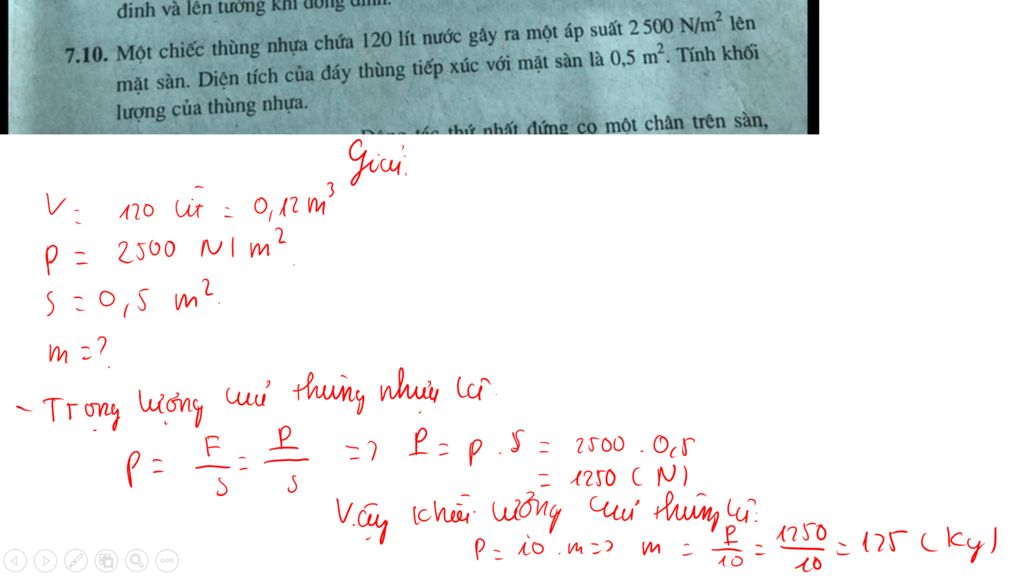 đinh và lên tường khi đóng đinh.
7.10. Một chiếc thùng nhựa chứa 120 lít nước gây ra một áp suất 2 500 N/m² lên
mặt sàn. Diện tích của đáy thùng tiếp xúc với mặt sàn là 0,5 m². Tính khối
lượng của thùng nhựa.
thứ nhất đứng co một chân trên sàn,
Giải:
V = 120 lít = 0,12 m³
p = 2500 N/m²
S = 0,5 m².
m = ?
- Trọng lượng của thùng nhựa là
p = F/S = P/S => P = p . S = 2500 . 0,5
= 1250 (N)
Vậy khối lượng của thùng là:
P = 10 . m => m = P/10 = 1250/10 = 125 (Kg)